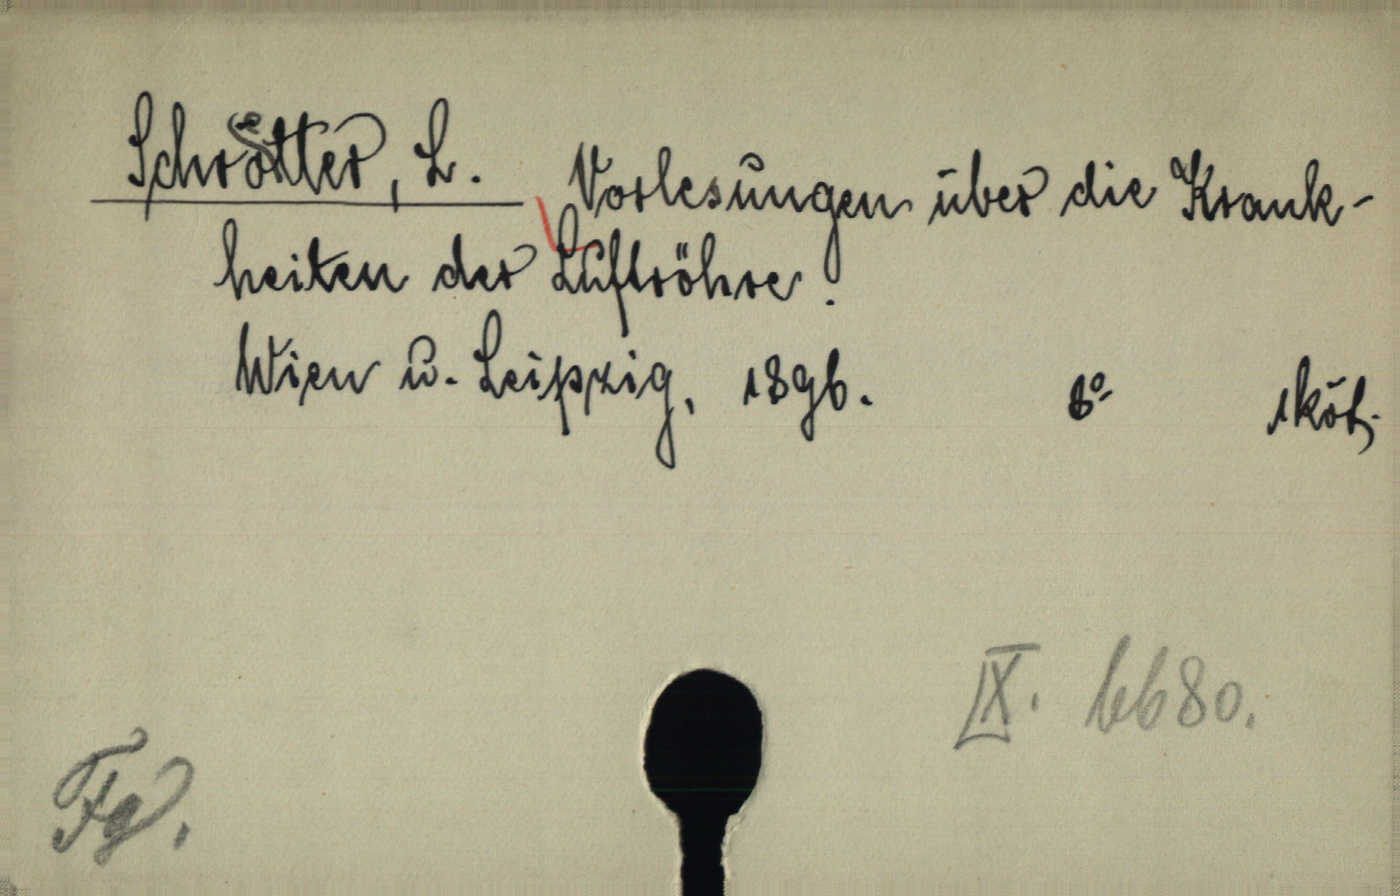 Schrötter, L. Vorlesungen über die Krank-
heiten der Luftröhre.
Wien u. Leipzig, 1896. 8° 1 köt.
IX. 6680.